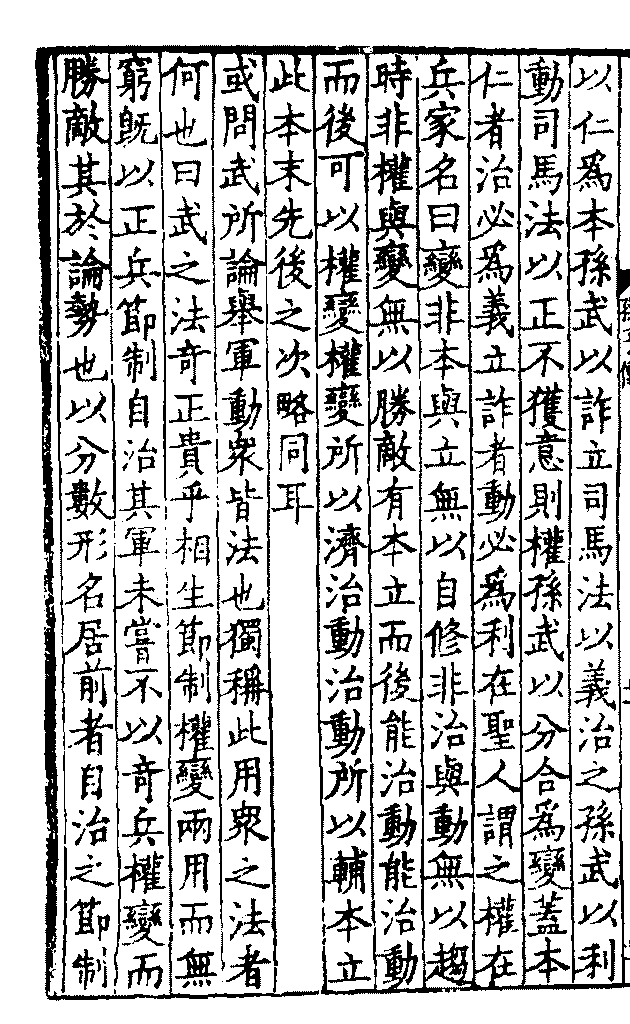 以仁爲本孫武以詐立司馬法以義治之孫武以利
動司馬法以正不獲意則權孫武以分合爲變蓋本
仁者治必爲義立詐者動必爲利在聖人謂之權在
兵家名曰變非本與立無以自修非治與動無以趨
時非權與變無以勝敵有本立而後能治動能治動
而後可以權變權變所以濟治動治動所以輔本立
此本末先後之次略同耳
或問武所論舉軍動衆皆法也獨稱此用衆之法者
何也曰武之法奇正貴乎相生節制權變兩用而無
窮既以正兵節制自治其軍未嘗不以奇兵權變而
勝敵其於論勢也以分數形名居前者自治之節制